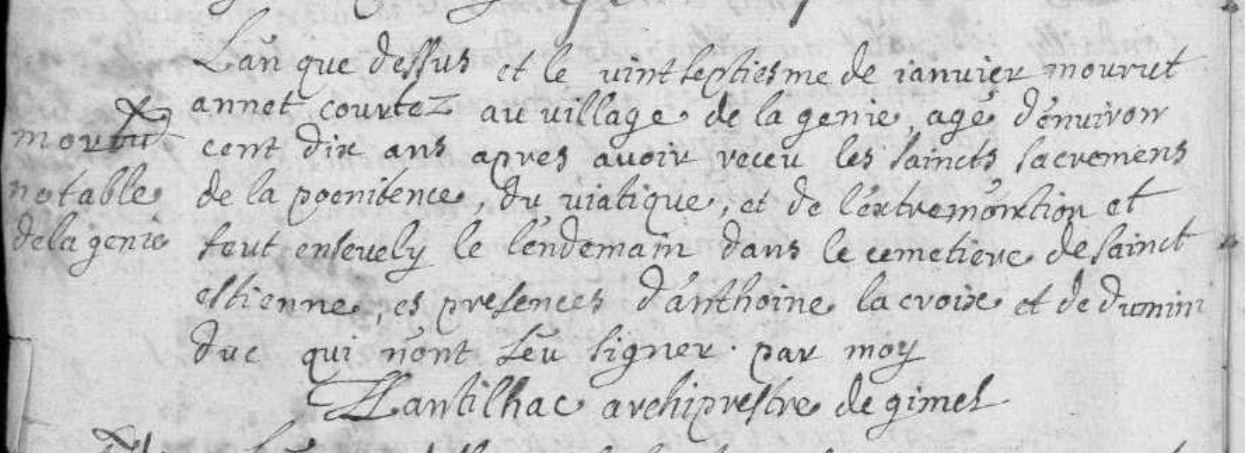 L'an que dessus et le vintseptiesme de ianvier mourut
annet courtez au village de la genie, agé d'environ
cent dix ans apres avoir receu les saincts sacremens
de la poenitence, du viatique, et de l'extremonction et
feut ensevely le lendemain dans le cemetiere de sainct
estienne, es presences d'anthoine la croix et de dumin
duc qui n'ont seu signer. par moy
archiprestre de gimel
notable
de la genie